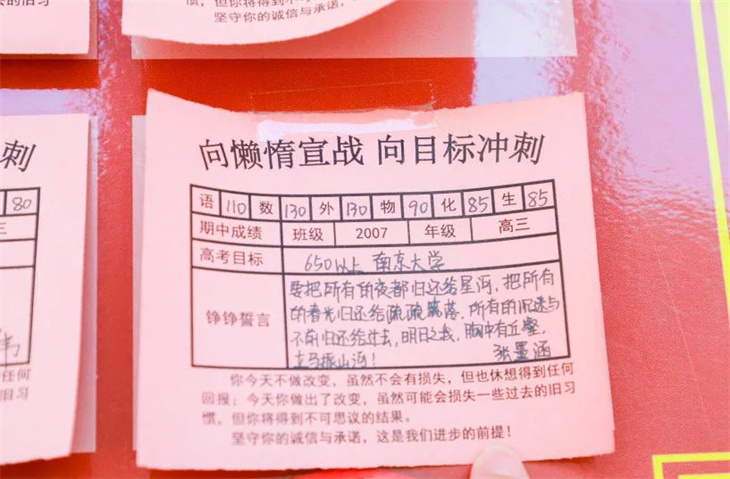 惯，但你将得到不
坚守你的诚信与承诺，
刺
80
三
任何
旧习
向懒惰宣战 向目标冲刺
语 110 数 130 外 130 物 90 化 85 生 85
期中成绩 班级 2007 年级 高三
高考目标 650以上 南京大学
铮铮誓言
要把所有的夜都归还给星河，把所有
的春光归还给疏疏篱落，所有的沉迷与
不前归还给过去，明日之我，胸中有丘壑，
立马振山河！ 张墨涵
你今天不做改变，虽然不会有损失，但也休想得到任何
回报；今天你做出了改变，虽然可能会损失一些过去的旧习
惯，但你将得到不可思议的结果。
坚守你的诚信与承诺，这是我们进步的前提！